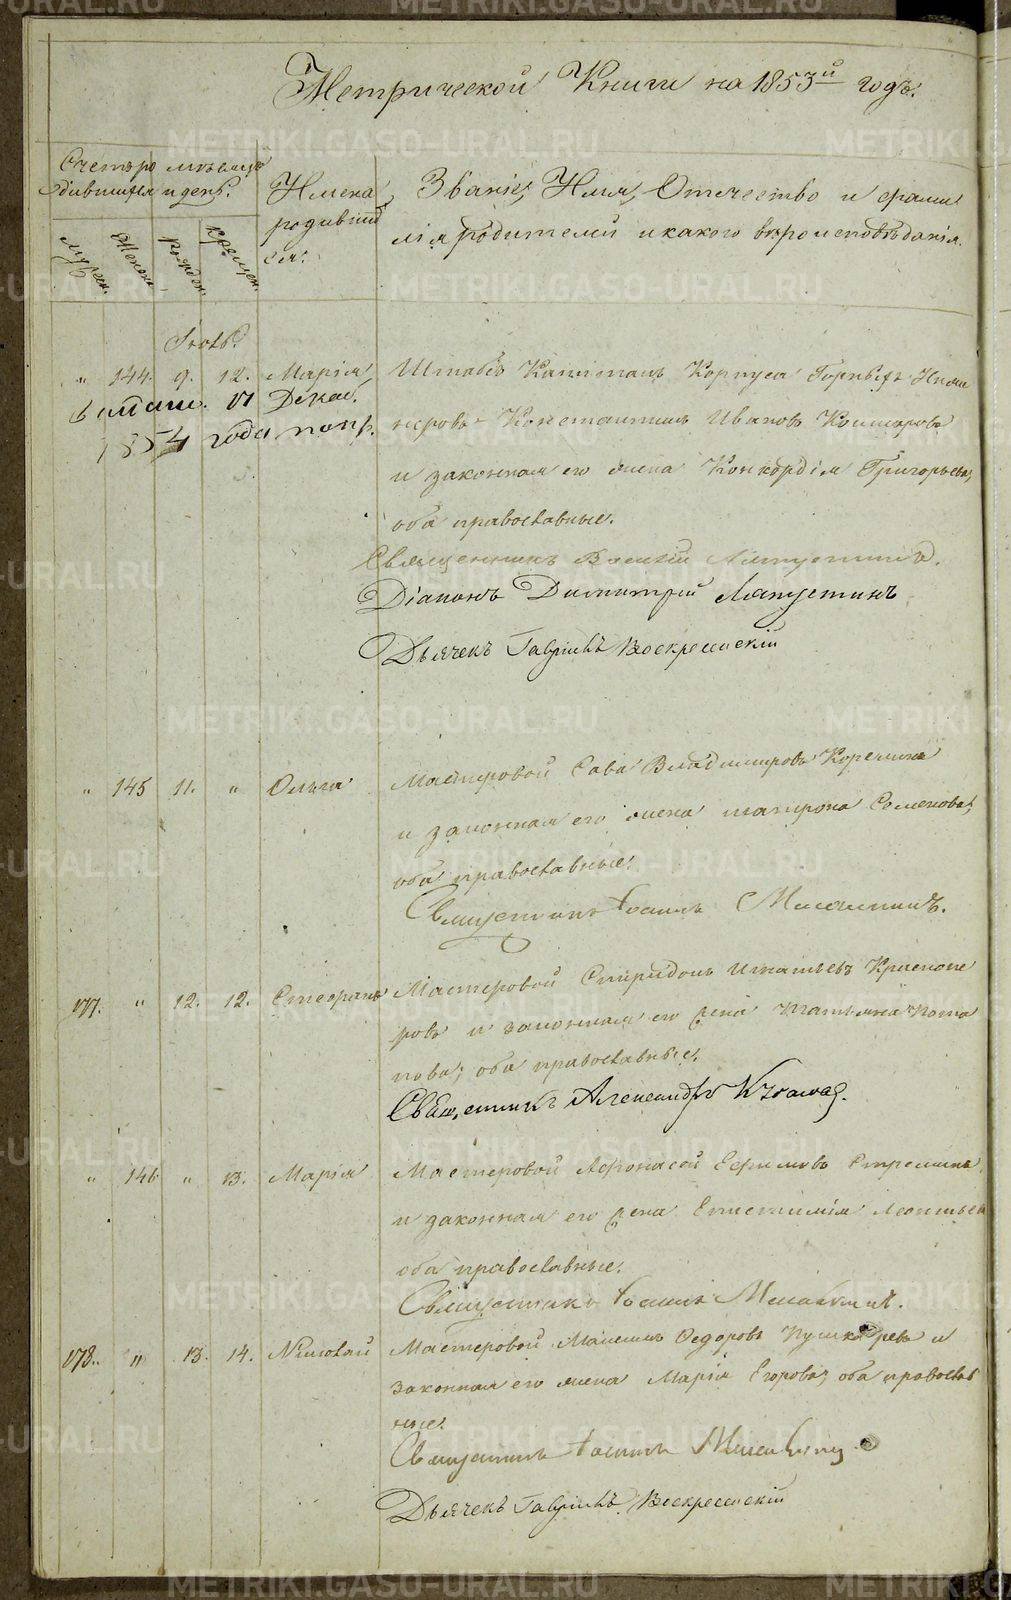 Метрической Книги на 1853й годъ.
Счетъ ро
дившихся
мѣсяцъ
и день.
Имена
родивших
ся.
Званіе, Имя, Отчество и фами
лія родителей и какого вѣроисповѣданія.
мужеск.
Женска.
рожден.
крещен.
Іюль.
" 144. 9. 12. Марія, Штабсъ Капитанъ Корпуса Горныхъ Инже
17 Декаб. неровъ Константинъ Ивановъ Кокшаровъ
1854 года
и законная его жена Конкордія Григорьева,
оба православные.
Священникъ
Діаконъ Димитрій Ляпустинъ
Дьячекъ Гавріилъ Воскресенскій
" 145 11. " Ольга Мастеровой Сава Владимировъ
и законная его жена Матрона Семенова,
оба православные.
Священникъ Іоаннъ
177. " 12. 12. Стефанъ Мастеровой Спиридонъ Игнатьевъ
ровъ и законная его жена Татьяна Пота
пова; оба православные.
Священникъ Александръ
" 146 " 13. Марія Мастеровой Афонасей Ефимовъ
и законная его жена Леонтьева
оба православные.
Священникъ Іоаннъ
178. " 13. 14. Николай Мастеровой Максимъ Федоровъ Пушкаревъ и
законная его жена Марія Егорова; оба православ
ные.
Священникъ Іоаннъ
Дьячекъ Гавріилъ Воскресенскій
METRIKI.GASO-URAL.RU